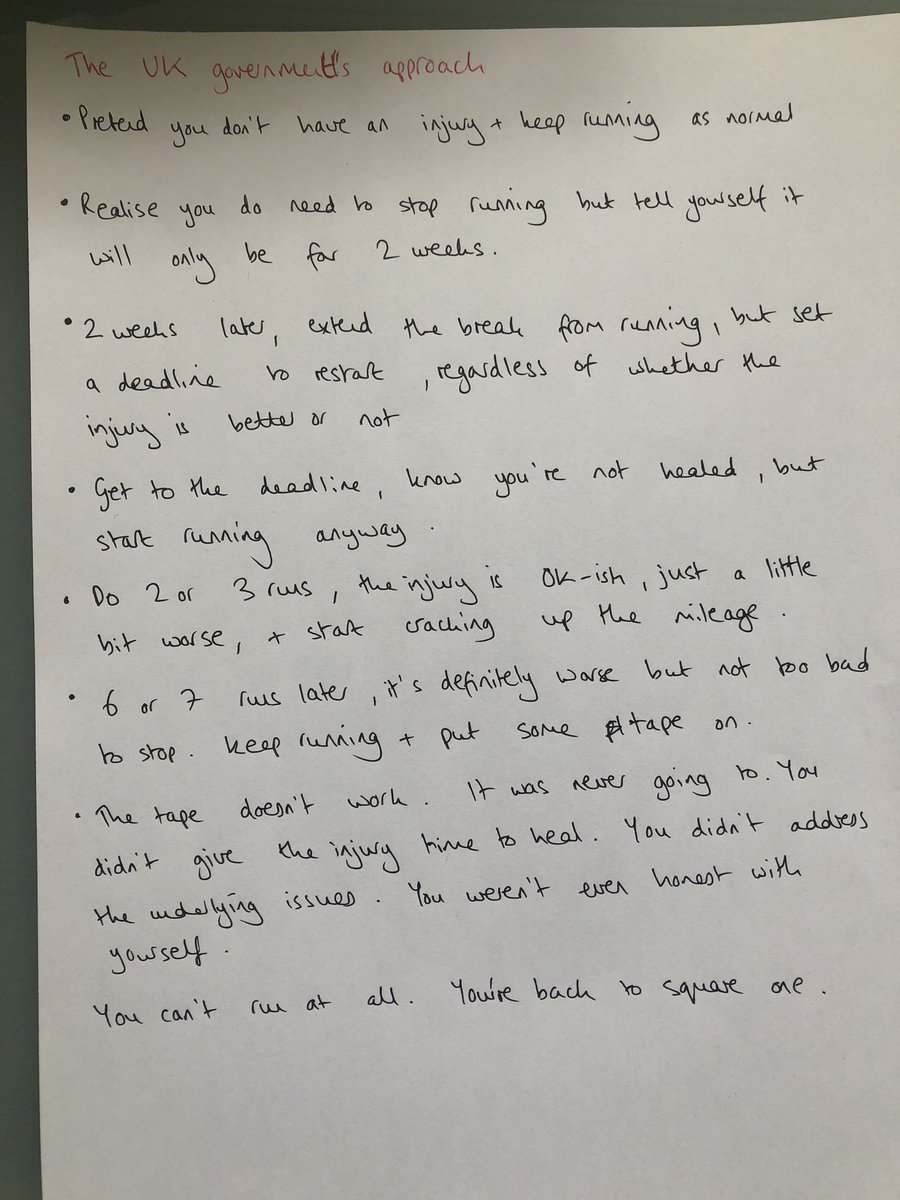 The UK government's approach
• Pretend you don't have an injury + keep running as normal
• Realise you do need to stop running but tell yourself it
will only be for 2 weeks.
• 2 weeks later, extend the break from running, but set
a deadline to restart, regardless of whether the
injury is better or not
• Get to the deadline, know you're not healed, but
start running anyway.
• Do 2 or 3 runs, the injury is OK-ish, just a little
bit worse, + start cracking up the mileage.
• 6 or 7 runs later, it's definitely worse but not too bad
to stop. Keep running + put some tape on.
• The tape doesn't work. It was never going to. You
didn't give the injury time to heal. You didn't address
the underlying issues. You weren't even honest with
yourself.
You can't run at all. You're back to square one.